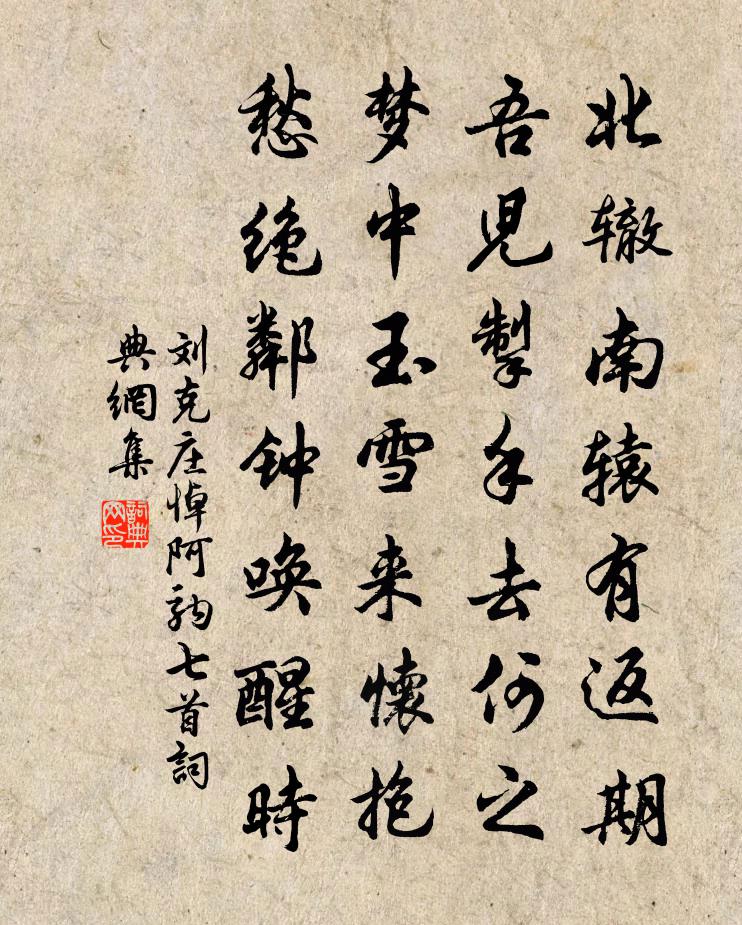 北辙南辕有返期
吾児掣手去何之
梦中玉雪来懐抱
愁绝鄰钟唤醒時
刘克庄悼阿駒七首詞
典網集
詞典
网印